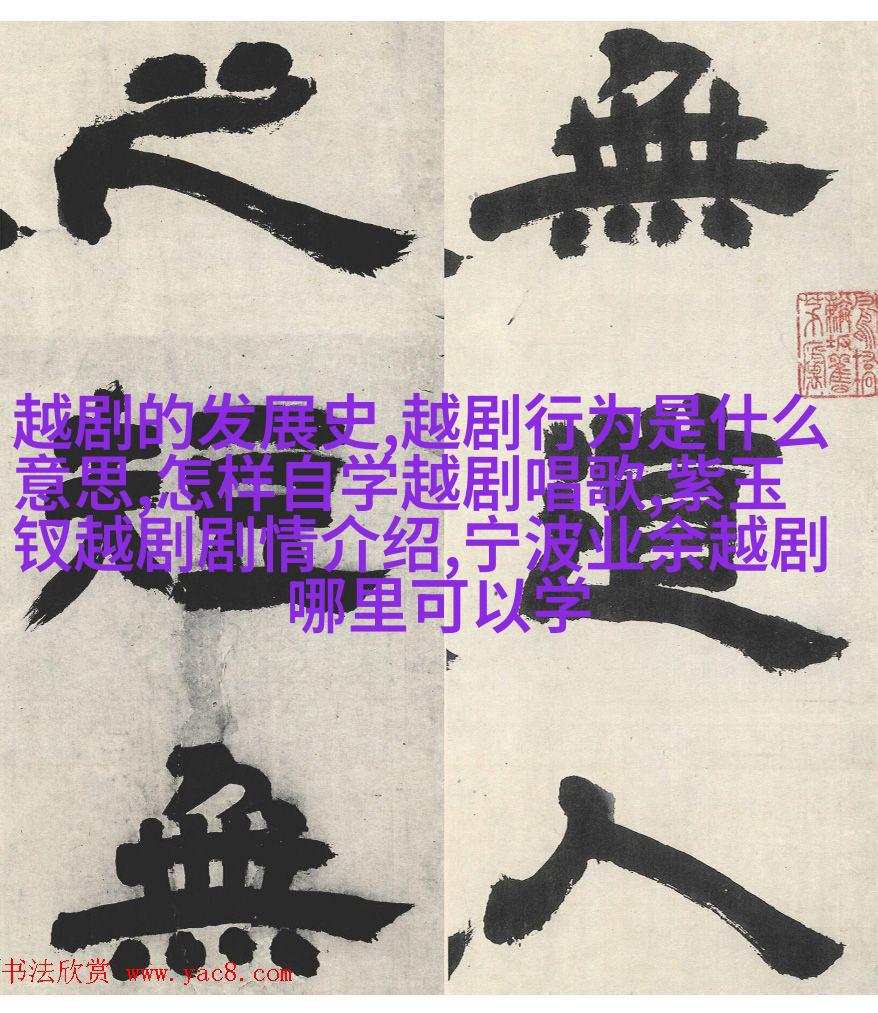 無
道
人
之
短
無
越剧的发展史,越剧行为是什么
意思,怎样自学越剧唱歌,紫玉
钗越剧剧情介绍,宁波业余越剧
哪里可以学
书法欣赏 www.yac8.com